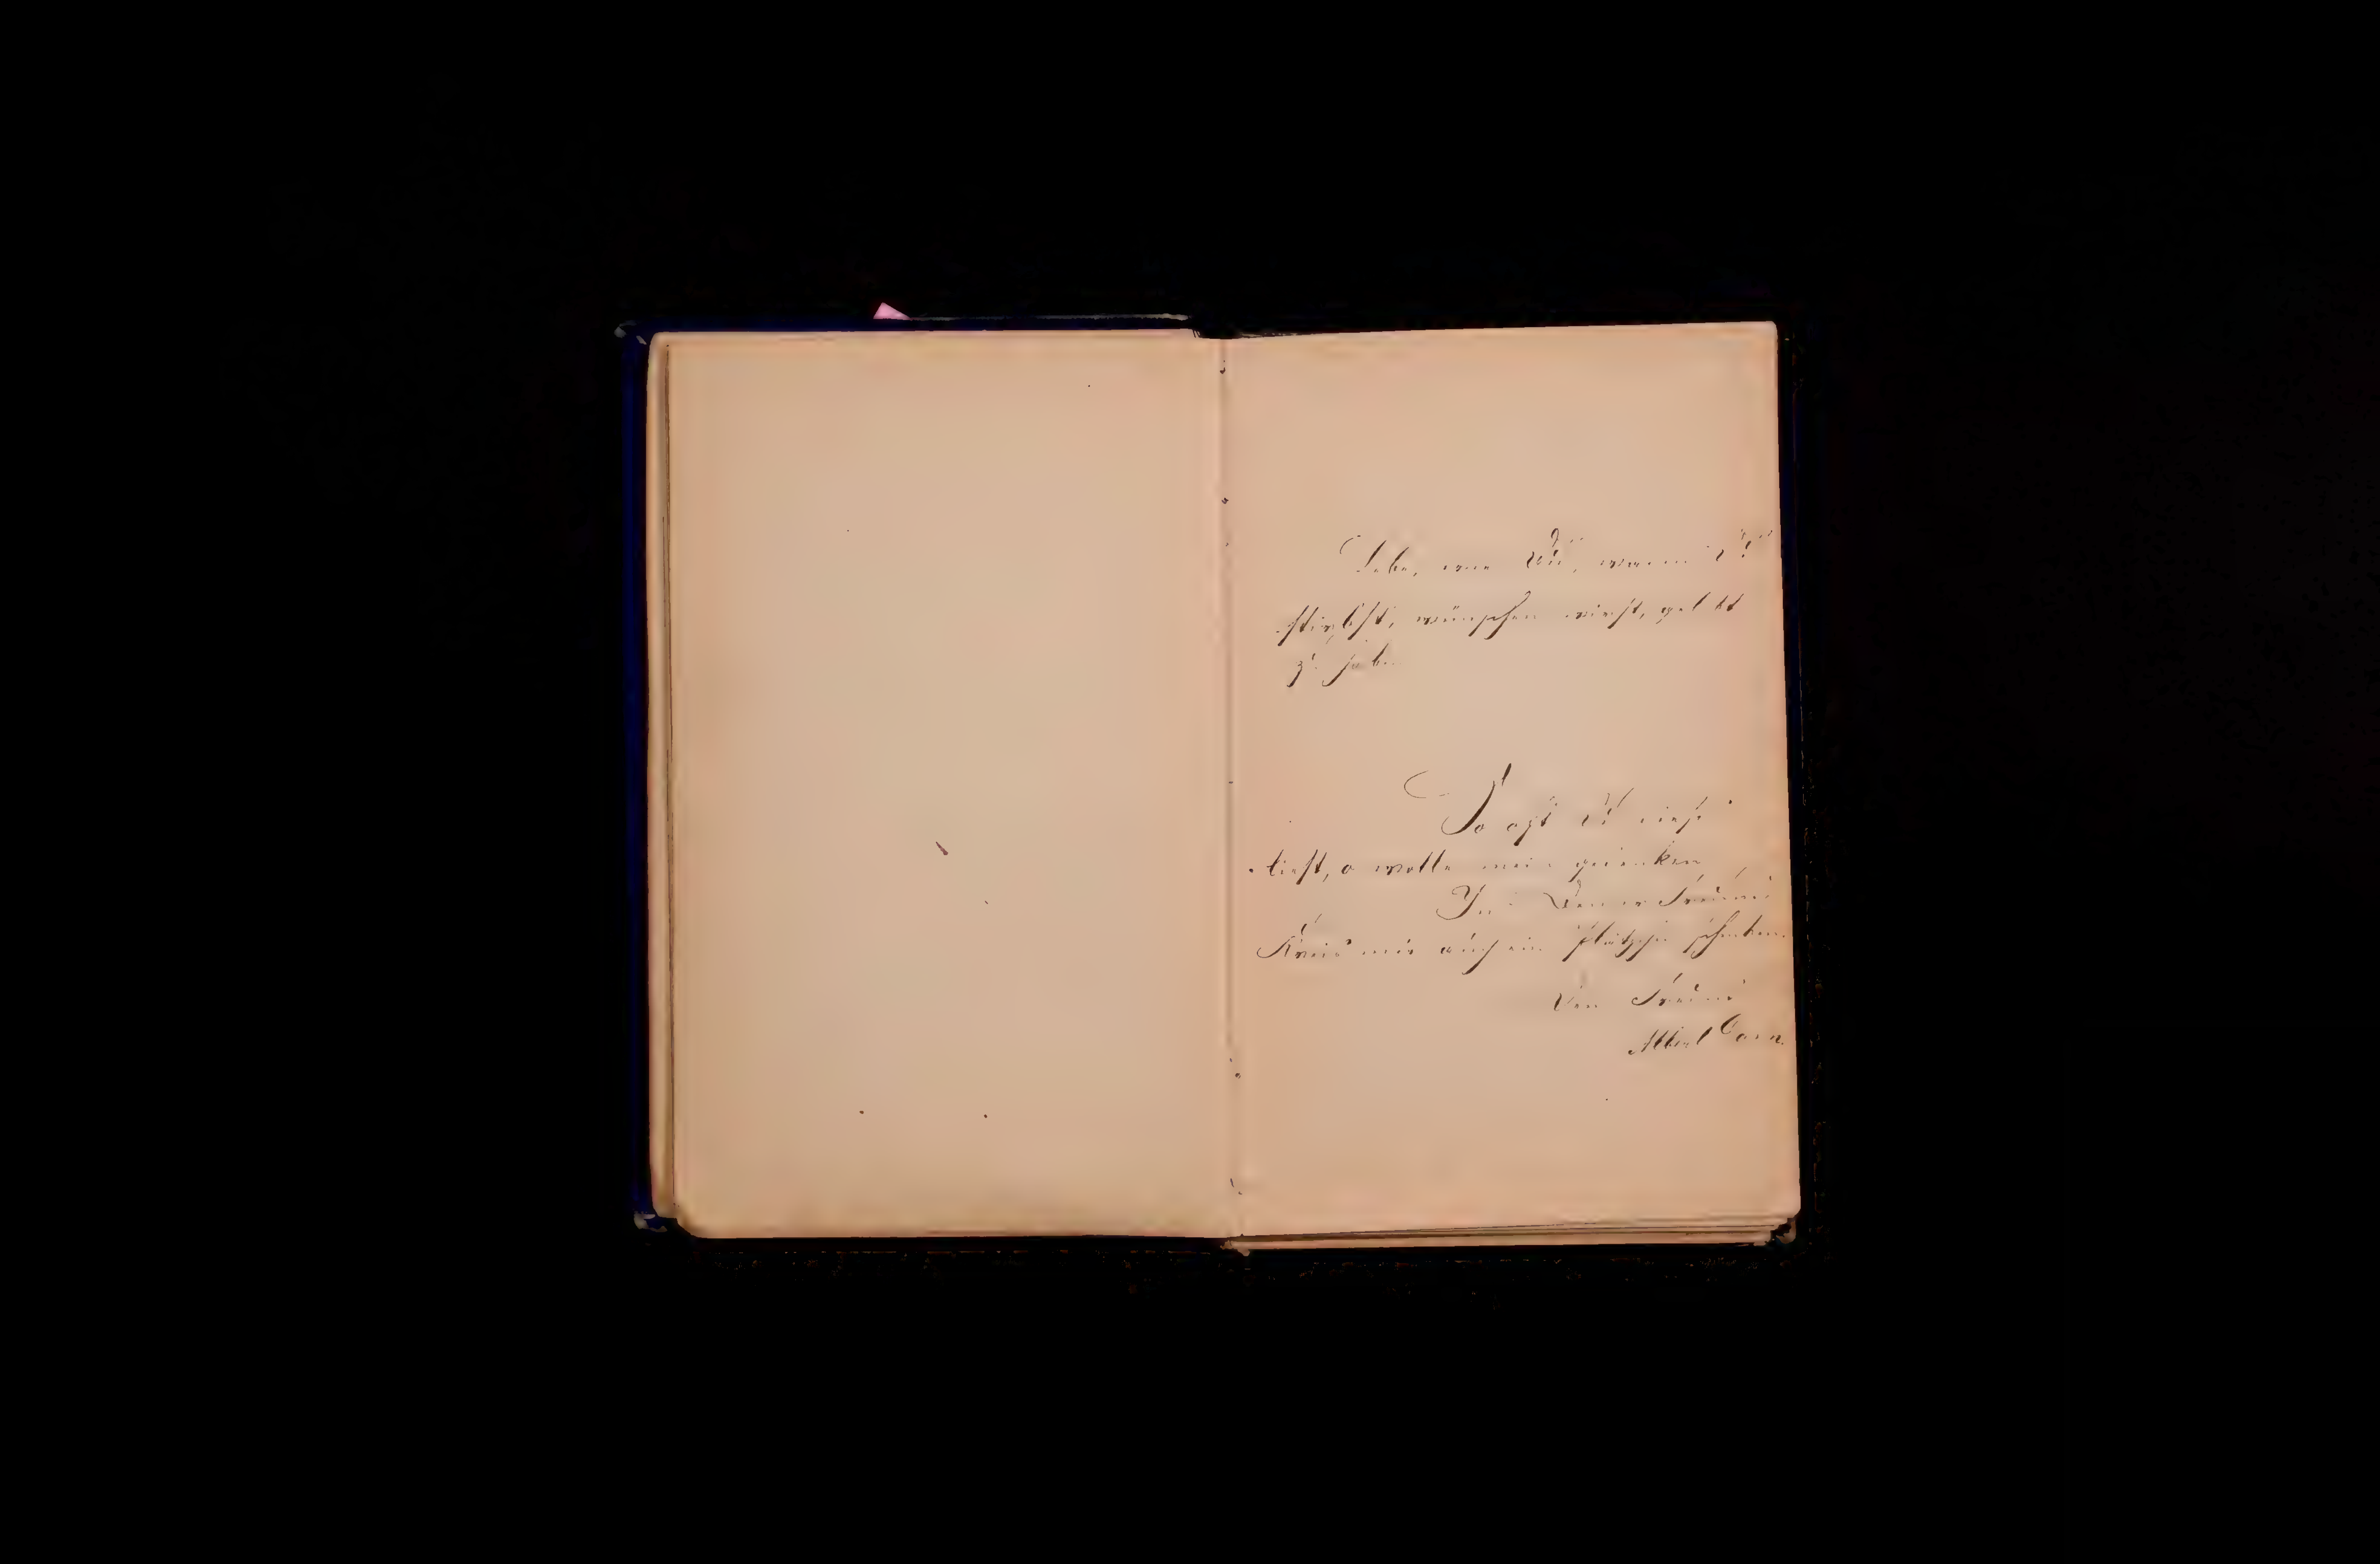 Lebe, wie Du, wenn Du
stirbst, wünschen wirst, gelebt
zu haben
So oft Du dieses
liest, o wolle mein gedenken,
In Deiner Freunde
Kreis mir auch ein Plätzchen schenken.
Dein Freund
Albert